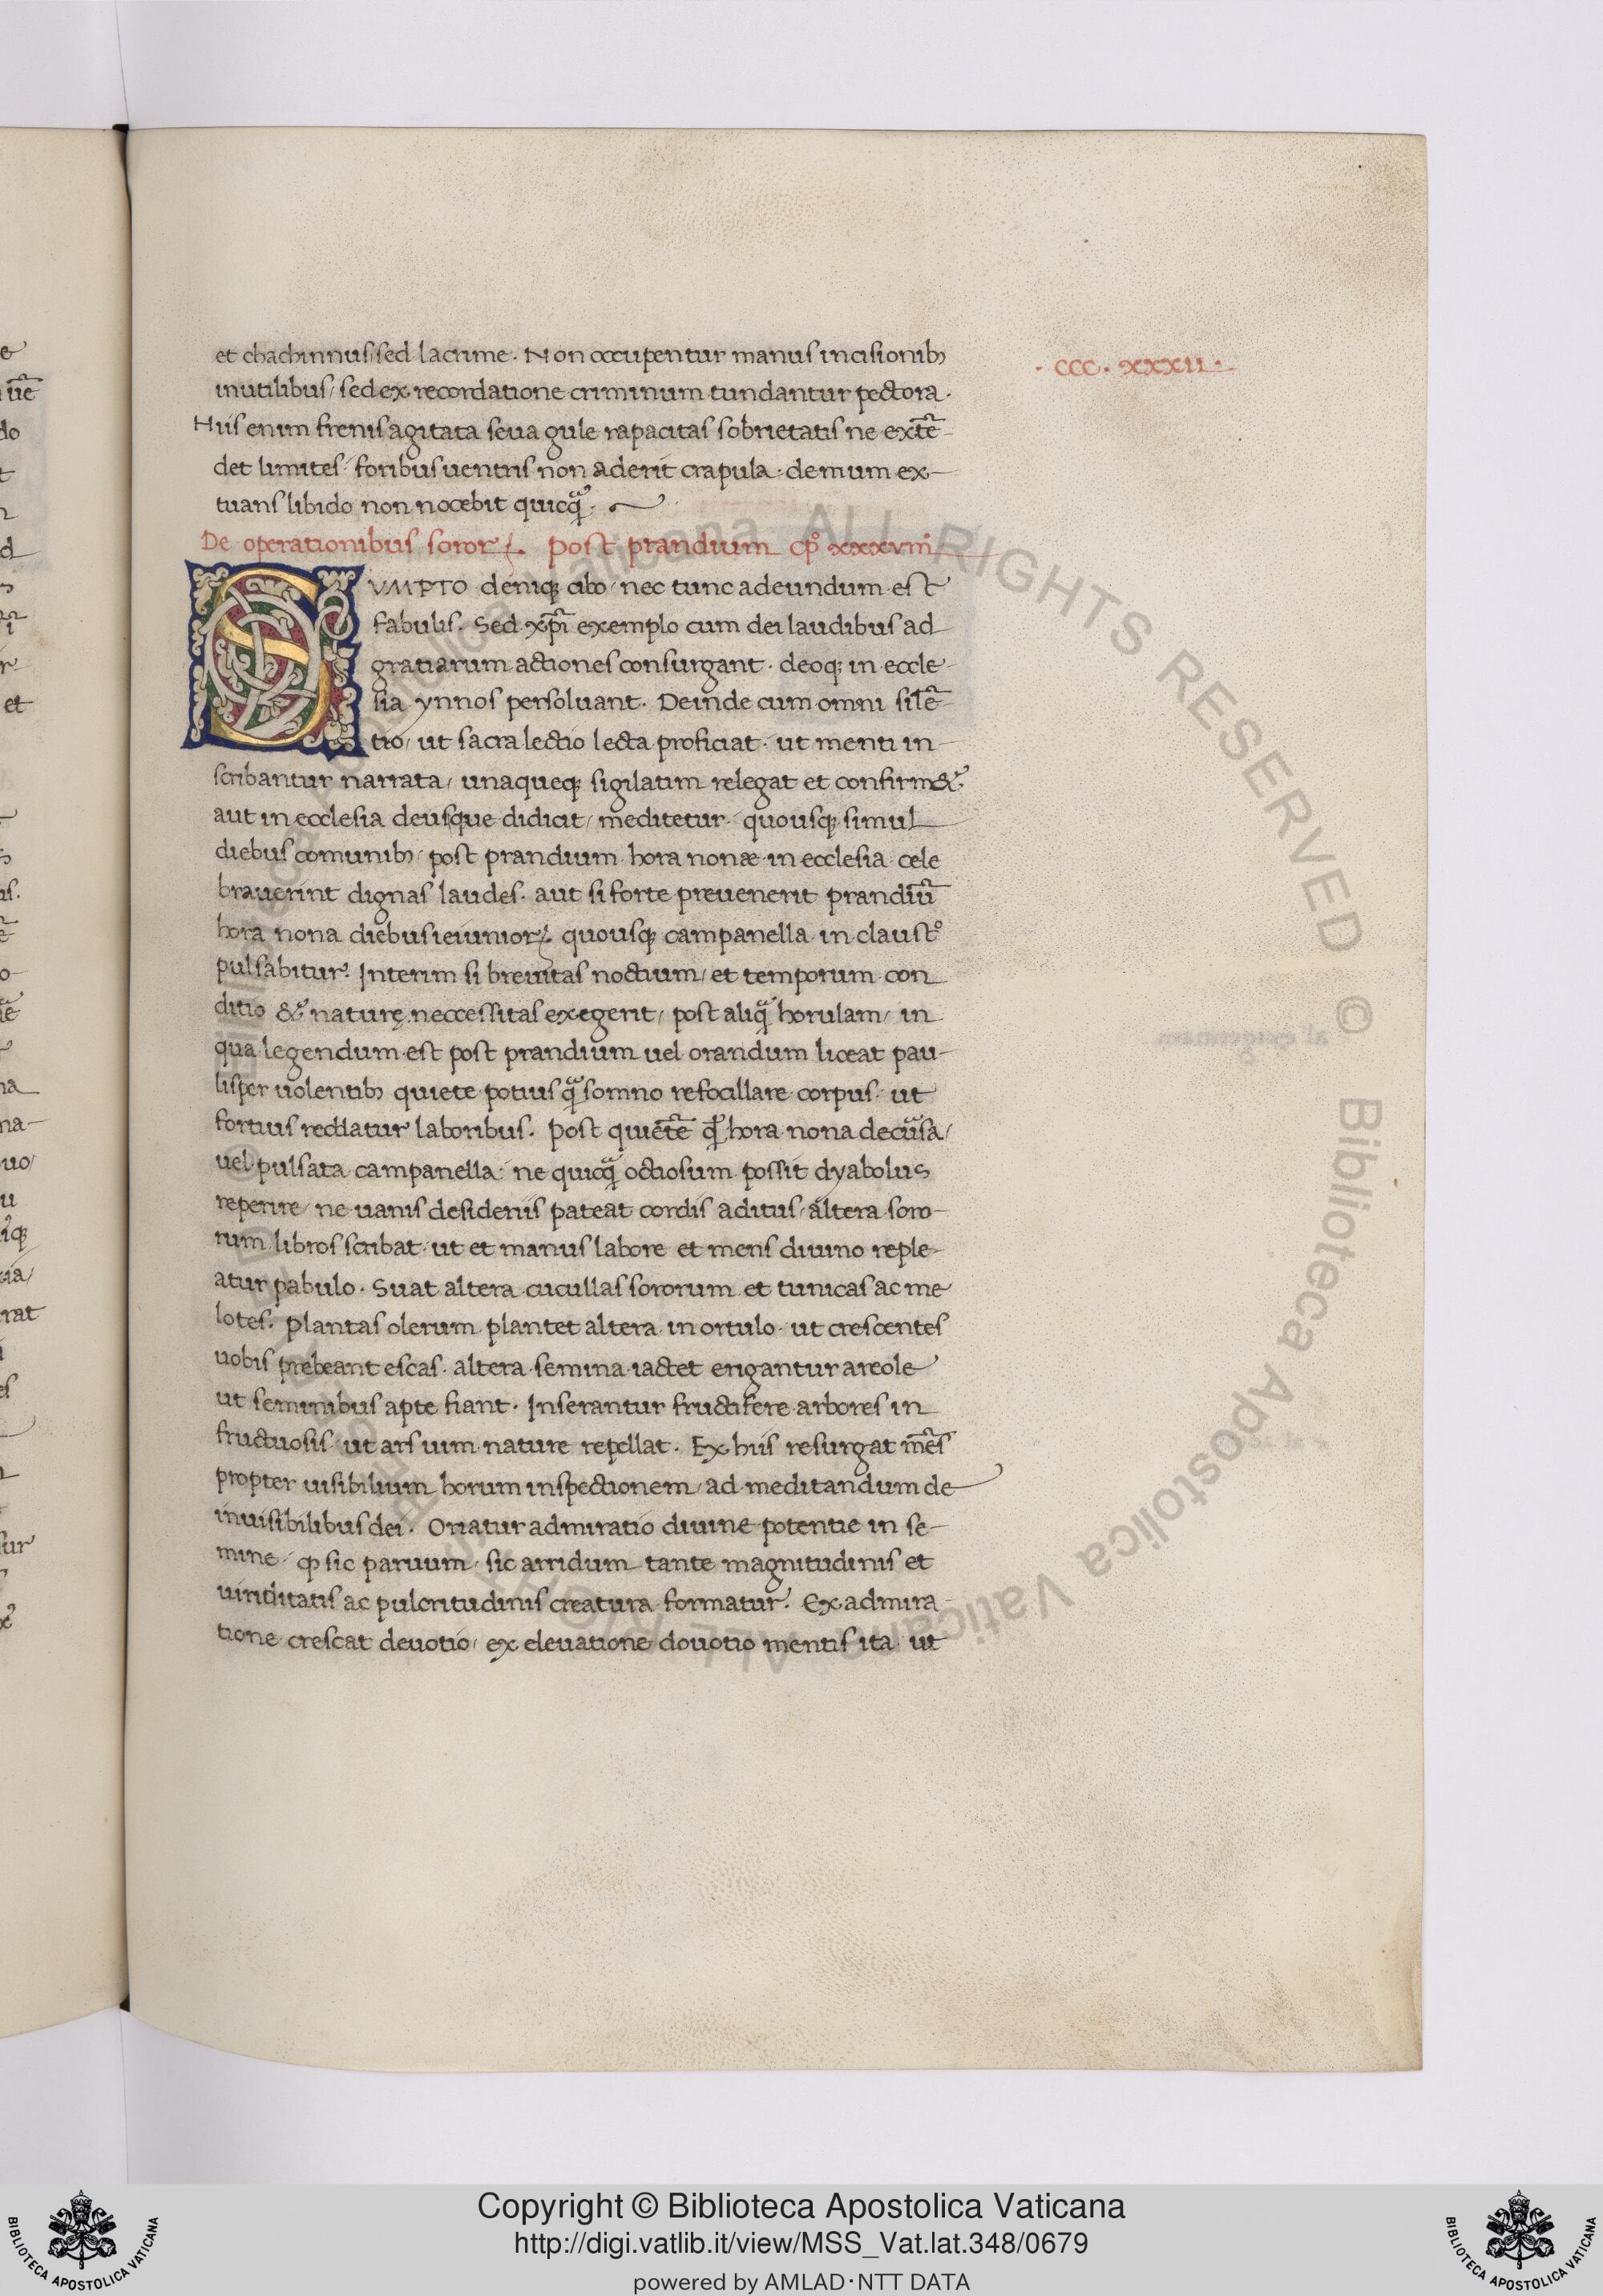 et chachinnus sed lacrime. Non occupentur manus incisionibꝫ
inutilibus/ sed ex recordatione criminum tundantur pectora.
Hiis enim frenis agitata seua gule rapacitas sobrietatis ne extē-
det limites. foribus uentris non aderit crapula. demum ex-
tuans libido non nocebit quicq̄.
De operationibus sororꝝ. Post prandium cp̊ xxxviii
SVMPTO deniqꝫ cibo/ nec tunc adeundum est
fabulis. Sed xp̄i exemplo cum dei laudibus ad
gratiarum actiones consurgant. deoqꝫ in eccle-
sia ynnos persoluant. Deinde cum omni silē-
tio/ ut sacra lectio lecta proficiat. ut menti in-
scribantur narrata/ unaqueqꝫ sigilatim relegat et confirm&.
aut in ecclesia deusque didicit/ meditetur. quousqꝫ simul
diebus comunibꝫ/ post prandium hora nonæ in ecclesia cele
brauerint dignas laudes. aut si forte preuenerit prandiū
hora nona diebus ieiuniorꝝ quousqꝫ campanella in claustº
pulsabitur. Interim si breuitas noctium/ et temporum con
ditio & naturę neccessitas exegerit/ post aliq̄ horulam/ in
qua legendum est post prandium uel orandum liceat pau-
lisper uolentibꝫ quiete potius q̄ somno refocillare corpus. ut
fortius reddatur laboribus. Post quietē hora nona decursa/
uel pulsata campanella. ne quicq̄ octiosum possit dyabolus
reperire/ ne uanis desideriis pateat cordis aditus/ altera soro-
rum libros scribat. ut et manus labore et mens diuino reple-
atur pabulo. Suat altera cucullas sororum et tunicas ac me
lotes. Plantas olerum plantet altera in ortulo. ut crescentes
uobis prebeant escas. altera semina iactet erigantur areole
ut seminibus apte fiant. Inserantur fructifere arbores in
fructuosis. ut ars uim nature repellat. Ex hiis resurgat mēs
propter uisibilium horum inspectionem/ ad meditandum de
inuisibilibus dei. Oriatur admiratio diuine potentie in se-
mine/ ꝙ sic paruum/ sic arridum tante magnitudinis et
uiriditatis ac pulcritudinis creatura formatur. Ex admira-
tione crescat deuotio/ ex eleuatione douotio mentis ita ut
. CCC. XXXII.
Copyright © Biblioteca Apostolica Vaticana
http://digi.vatlib.it/view/MSS_Vat.lat.348/0679
powered by AMLAD·NTT DATA